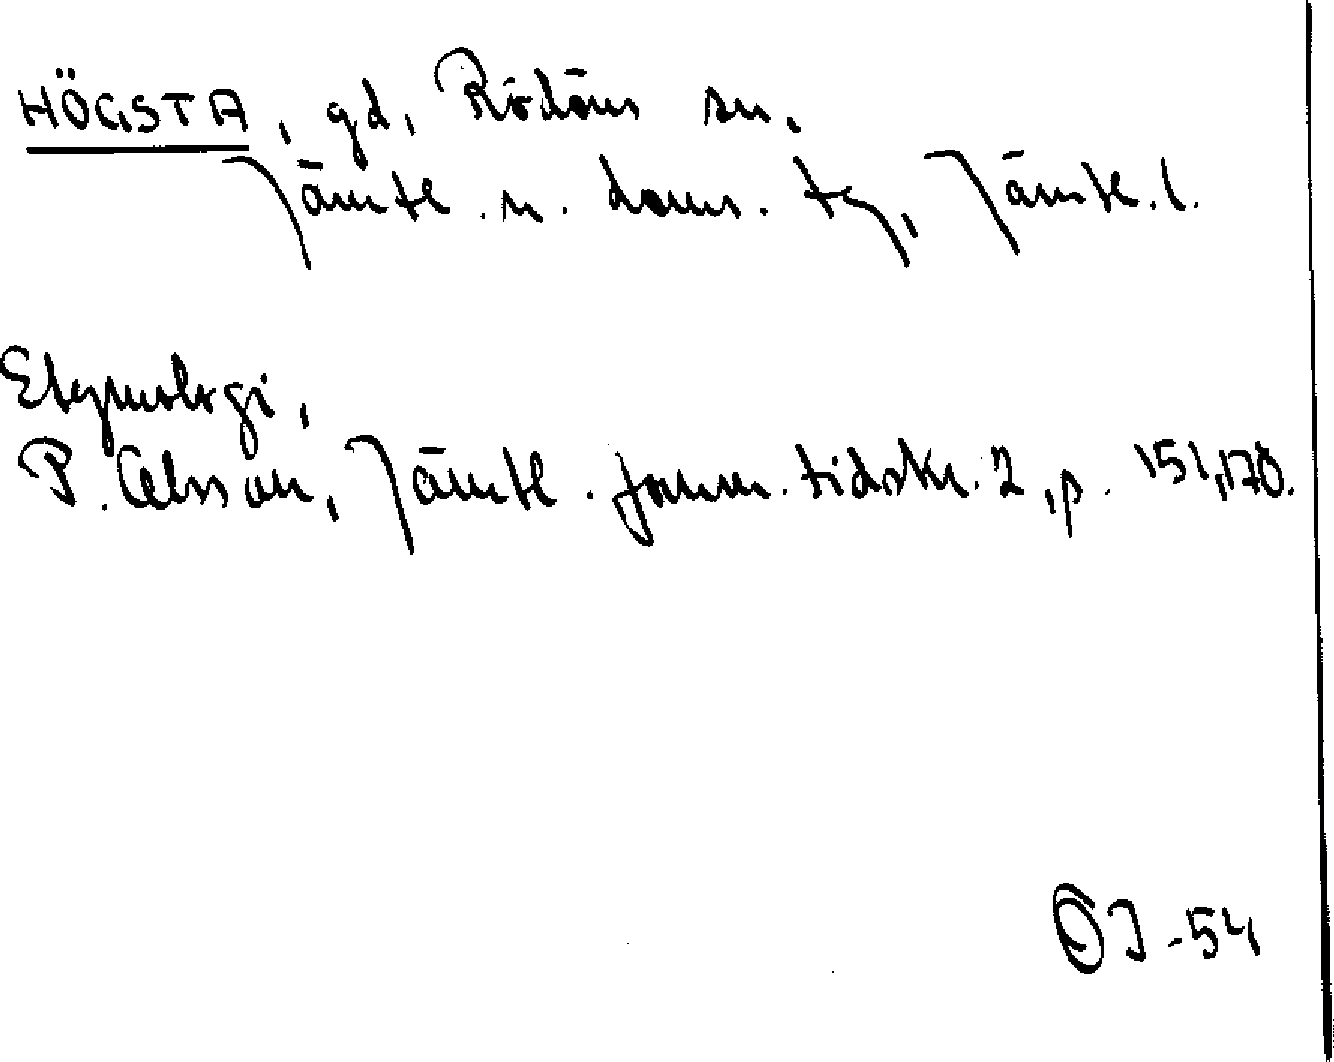 HÖGSTA, gd, Rödöns sn,
Jämtl. n. doms. tg, Jämtl. l.
Etymologi,
P. Olsson, Jämtl. fornm. tidskr. 2, p. 151, 170.
ÖJ-54